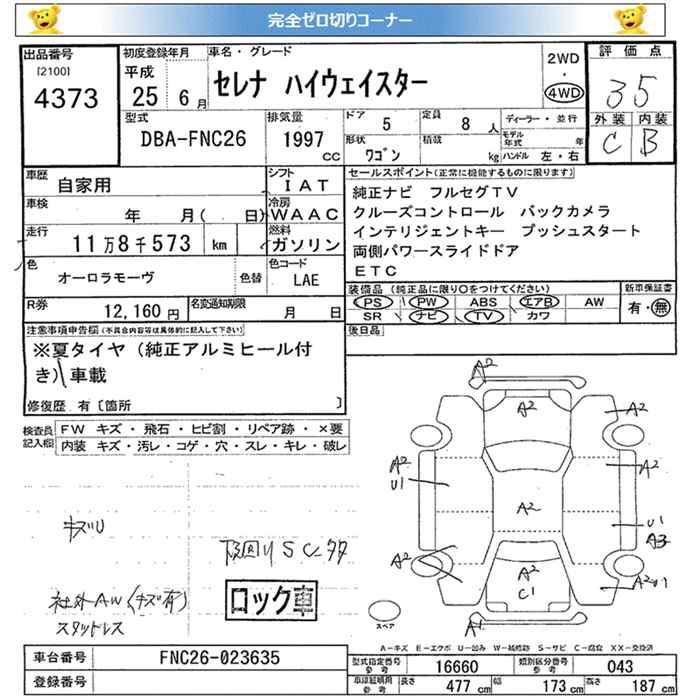 完全ゼロ切りコーナー
出品番号
[2100]
4373
初度登録年月
平成
25 6月
車名・グレード
セレナ ハイウェイスター
2WD
・
4WD
評価点
35
型式
DBA-FNC26
排気量
1997
cc
ドア
5
定員
8人
形状
ワゴン
積載
kg
ディーラー・並行
モデル年式 年
ハンドル 左・右
外装 内装
C B
車歴
自家用
シフト
IAT
車検
年 月( 日)
冷房
WAAC
走行
11万8千573 km
燃料
ガソリン
色
オーロラモーヴ
色替
色コード
LAE
R券
12,160円
名変通知期限
月 日
セールスポイント(正常に機能するものに限ります)
純正ナビ フルセグTV
クルーズコントロール バックカメラ
インテリジェントキー プッシュスタート
両側パワースライドドア
ETC
装備品(純正品に限り○をつけてください)
PS PW ABS エアB AW
SR ナビ TV カワ
新車保証書
有・無
後日品
注意事項申告欄(不具合内容等は具体的に記入して下さい)
※夏タイヤ(純正アルミヒール付
き)車載
修復歴 有[箇所 ]
検査員
記入欄
FW キズ・飛石・ヒビ割・リペア跡・×要
内装 キズ・汚レ・コゲ・穴・スレ・キレ・破レ
キズU
下回りSC
社外AW(キズ有)
スタッドレス
ロック車
A2
A2
A2
A2
U1
A2
A2
U1
A3
A2
A2
C1
A2U1
A1
スペア
A-キズ E-エクボ U-凹み W-補修跡 S-サビ C-腐食 XX-交換済
車台番号
FNC26-023635
登録番号
型式指定番号
参考
16660
類別区分番号
参考
043
車検証明用
参考
長さ
477cm
幅
173cm
高さ
187cm